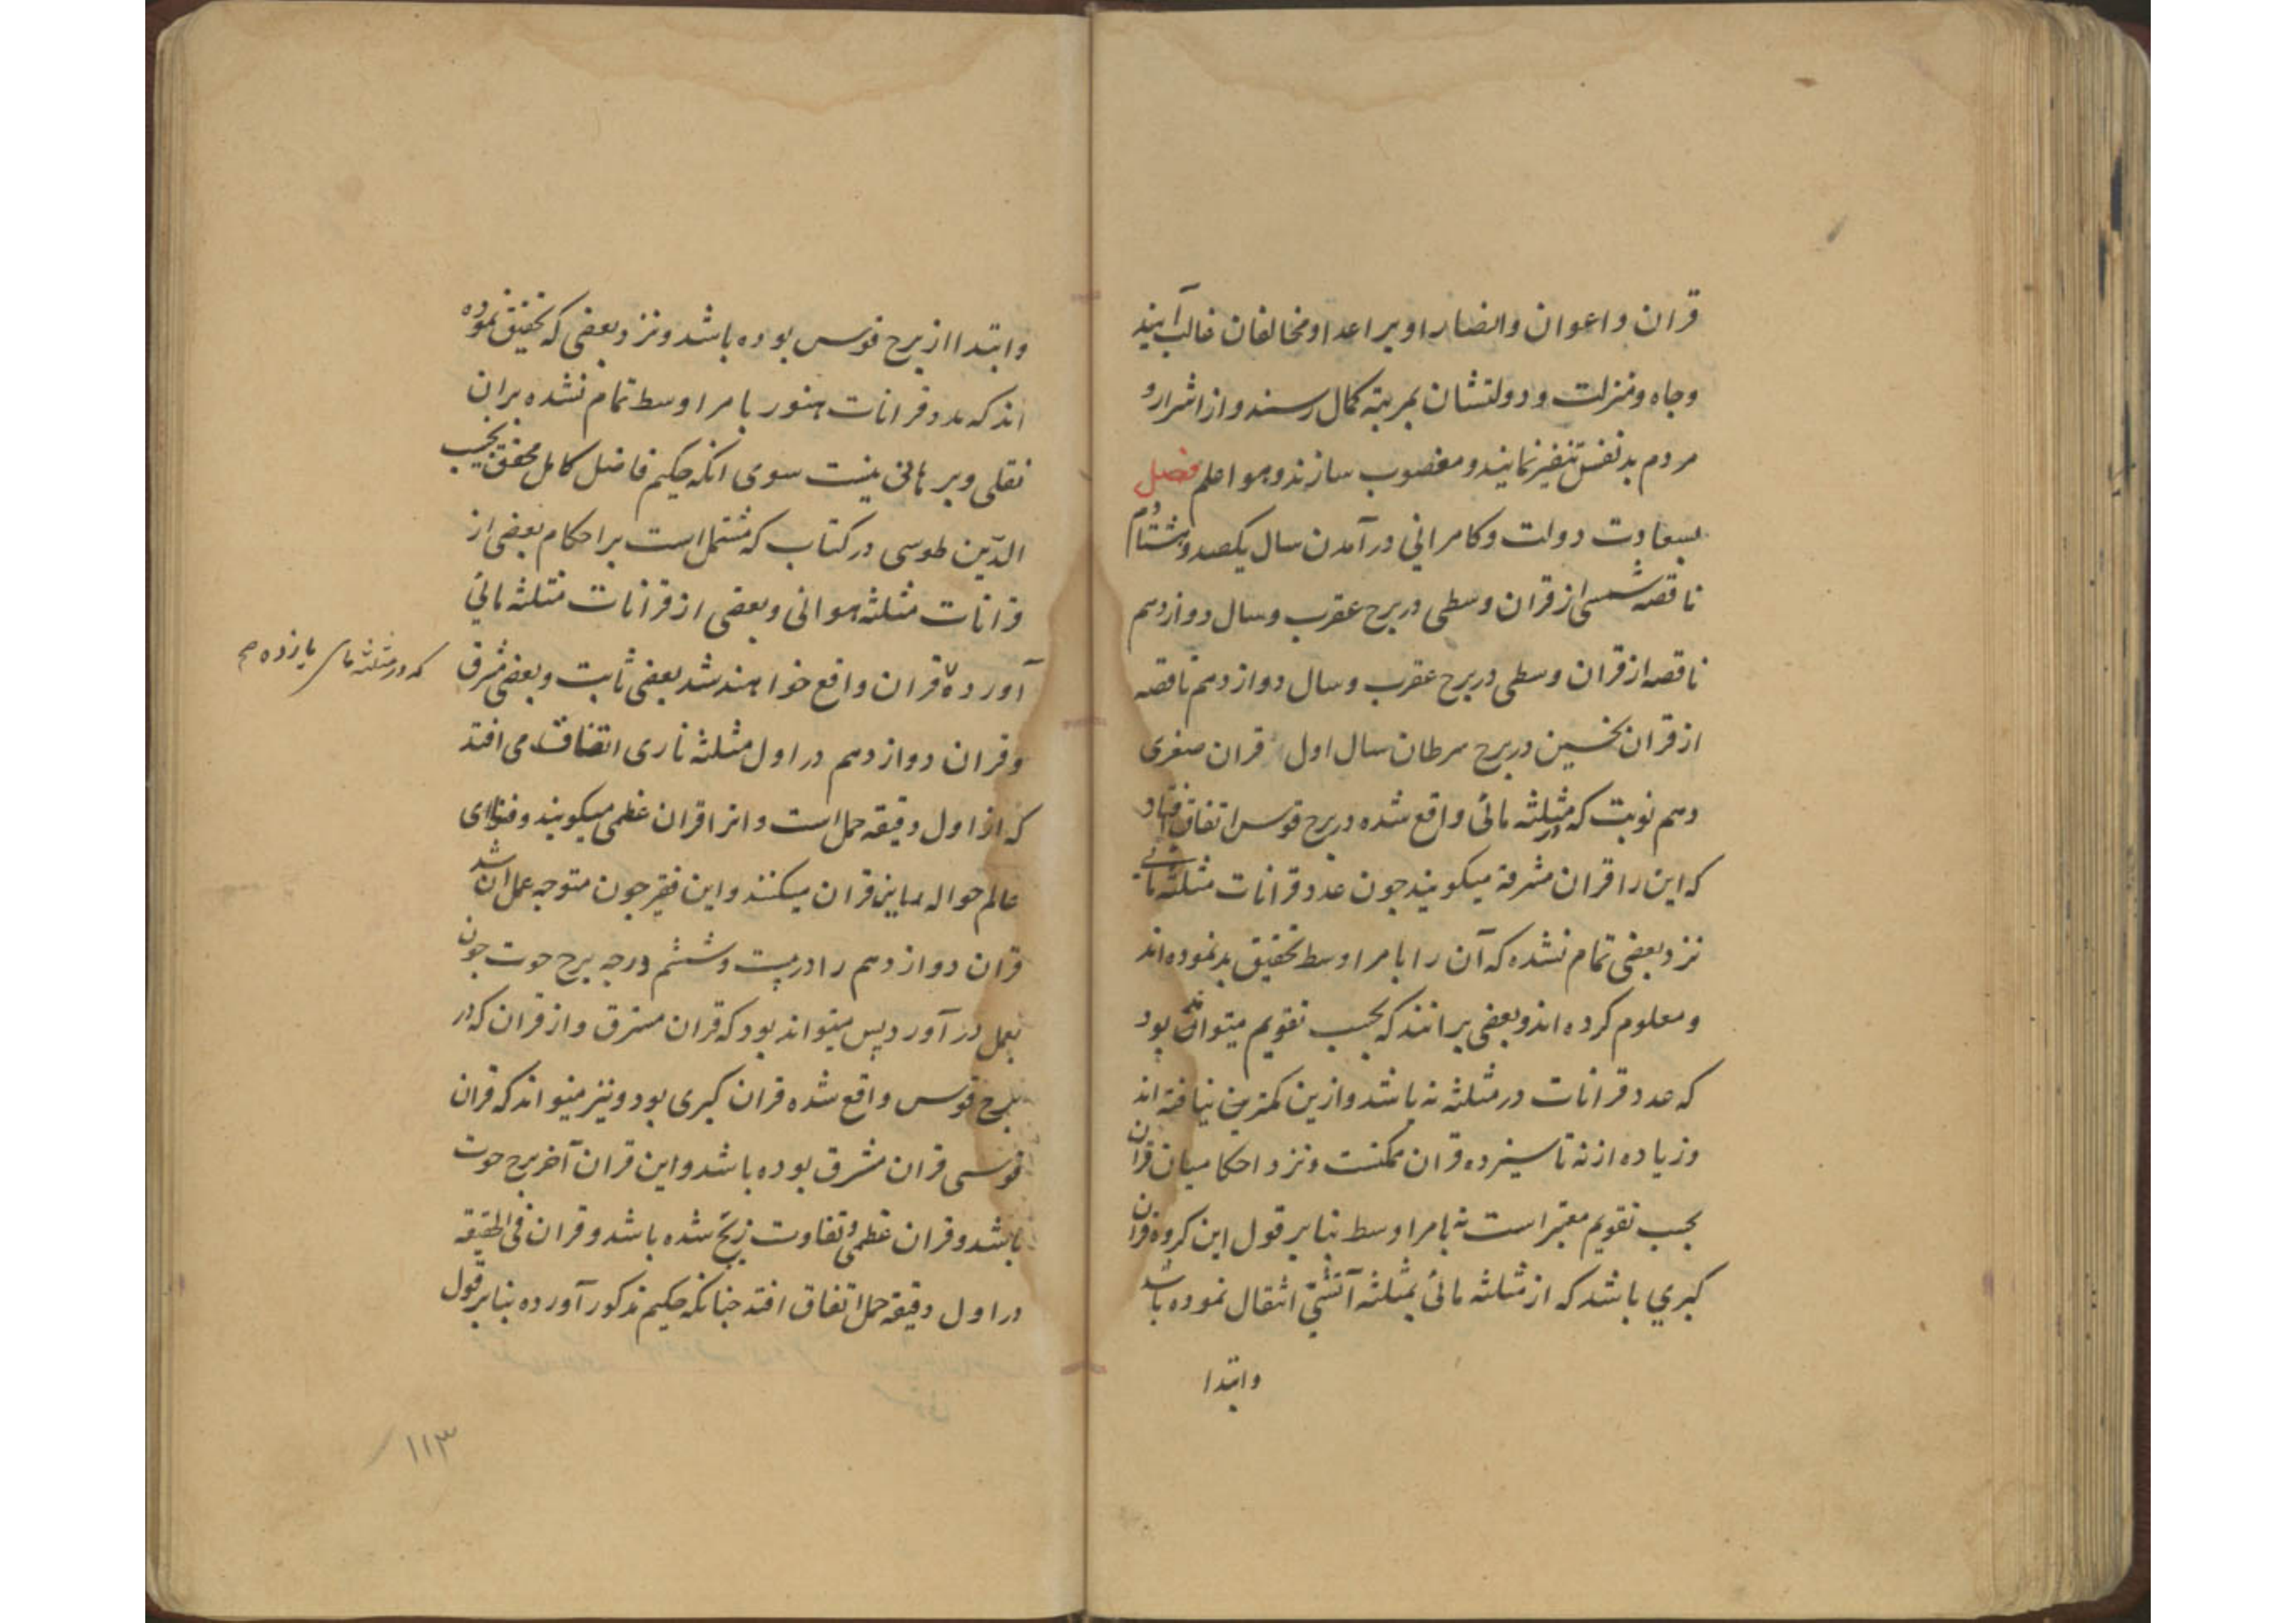 قران و اعوان و انصار او بر اعدا و مخالفان غالب آیند
و جاه و منزلت و دولتشان بمرتبه کمال رسند و از اشرار و
مردم بد نفس تنفیر نمایند و مغضوب سازند و هو اعلم فصل
بسعادت دولت و کامرانی در آمدن سال یکصد و هشتاد و دوم
ناقصه شمسی از قران وسطی در برج عقرب و سال دوازدهم
ناقصه از قران وسطی در برج عقرب و سال دوازدهم ناقصه
از قران نحسین در برج سرطان سال اول قران صغری
دهم نوبت که در مثلثه مائی واقع شده در برج قوس اتفاق افتاد
که این را قران مشرفه میکویند جون عدد قرانات مثلثه مائی
نزد بعضی تمام نشده که آن را بامر اوسط تحقیق بد نموده اند
و معلوم کرده اند و بعضی برانند که بحسب تقویم میتواند بود
که عدد قرانات در مثلثه نه باشد و ازین کمترین نیافته اند
و زیاده از نه تا سیزده قران ممکنست و نزد احکامیان قران
بحسب تقویم معتبر است نه بامر اوسط بنابر قول این کروه قران
کبری باشد که از مثلثه مائی بمثلثه آتشی انتقال نموده باشد
و ابتدا
و ابتدا از برج قوس بوده باشد و نزد بعضی که تحقیق نموده
اند که عدد قرانات هنوز بامر اوسط تمام نشده بران
نقلی و برهانی نیست سوی انکه حکیم فاضل کامل محقق نجیب
الدین طوسی در کتاب که مشتمل است بر احکام بعضی از
قرانات مثلثه هوائی و بعضی از قرانات مثلثه مائی
آورده قران واقع خواهند شد بعضی ثابت و بعضی مشرق
که در مثلثه مائی یازده صح
و قران دوازدهم در اول مثلثه ناری اتفاق می افتد
که از اول دقیقه حمل است و انرا قران عظمی میکویند و فنای
عالم حواله بماین قران میکنند و این فقیر جون متوجه عمل ان شد
قران دوازدهم را در بیست و ششم درجه برج حوت جون
بعمل در آورد پس میتواند بود که قران مشرق و از قران که در
برج قوس واقع شده قران کبری بود و نیز میتواند که قران
قوسی قران مشرق بوده باشد و این قران آخر برج حوت
باشد و قران عظمی و تفاوت زیج شده باشد و قران فی الحقیقه
در اول دقیقه حمل اتفاق افتد جنانکه حکیم مذکور آورده بنابر قول
۱۱۳